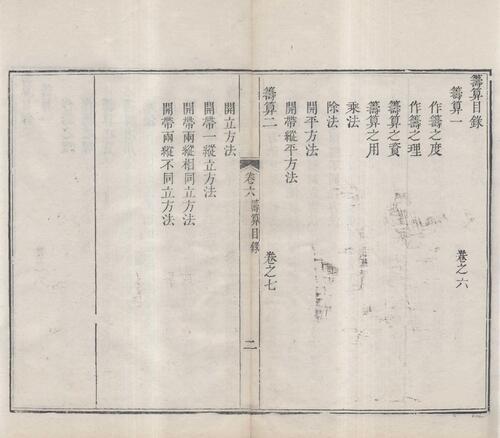 籌算目錄
籌算一 卷之六
作籌之度
作籌之理
籌算之資
籌算之用
乘法
除法
開平方法
開帶縱平方法
籌算二 卷之七
卷六籌算目錄 二
開立方法
開帶一縱立方法
開帶兩縱相同立方法
開帶兩縱不同立方法